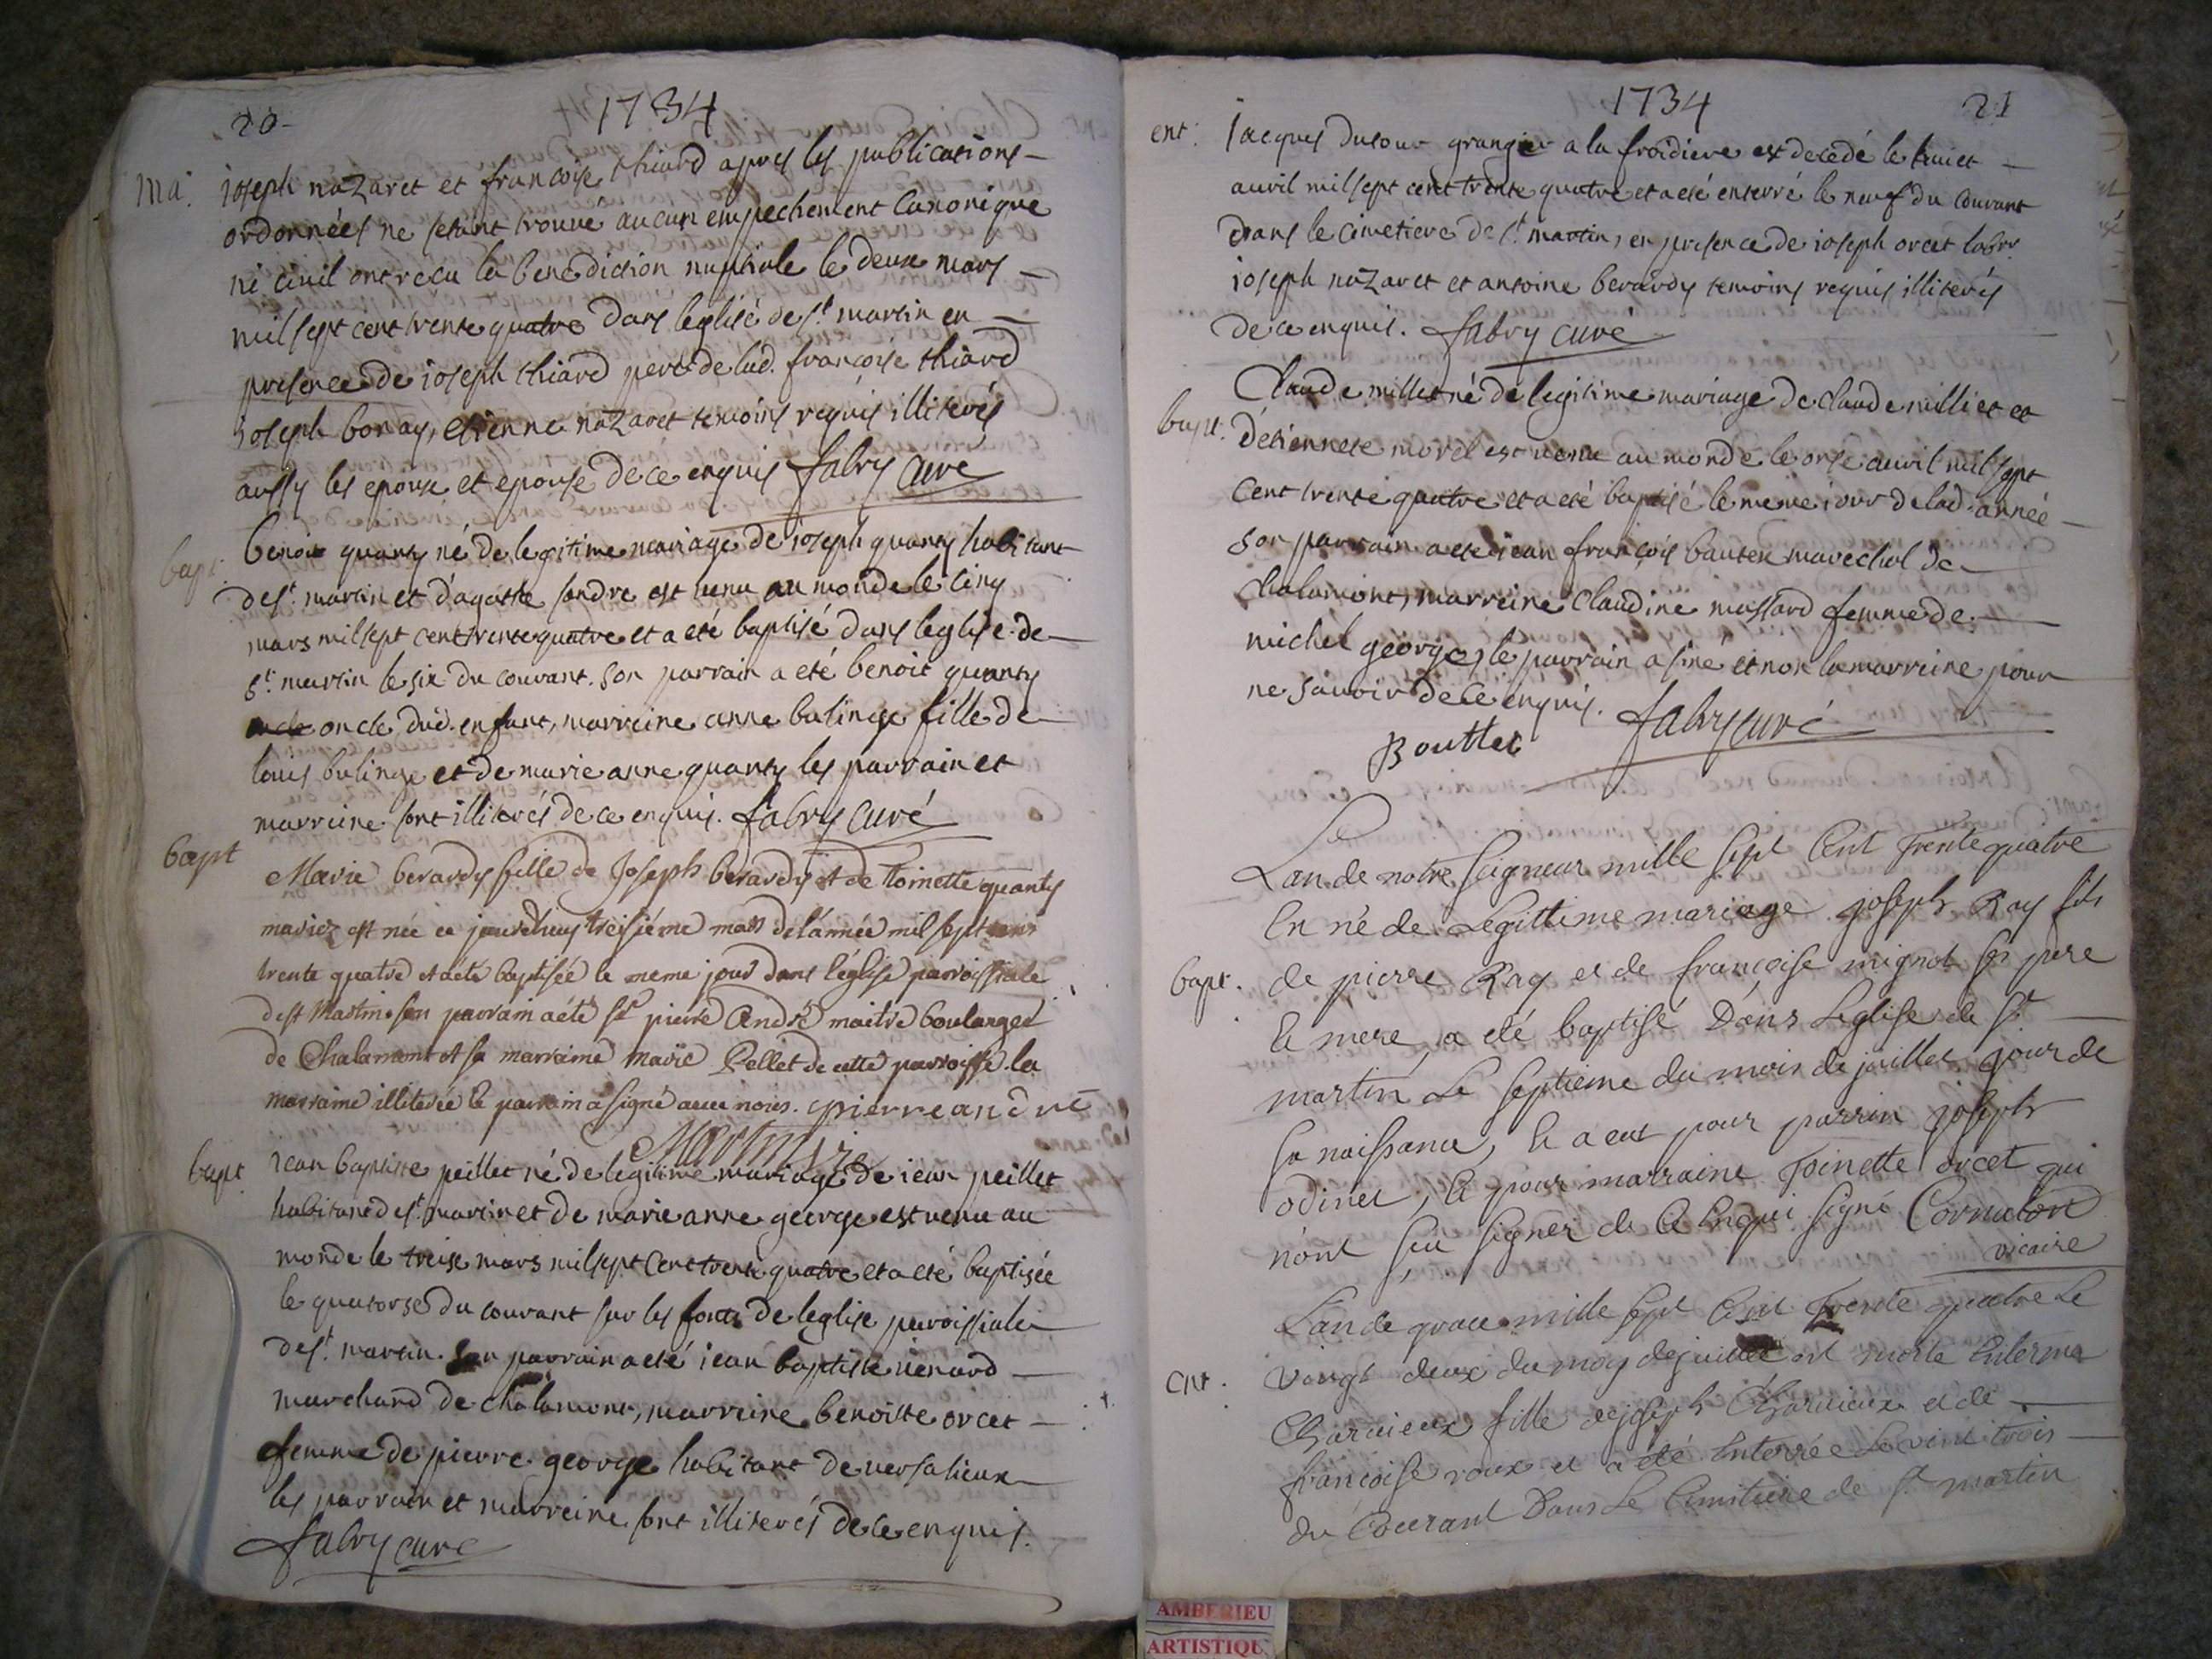 20-
1734
ma.
joseph nazaret et francoise thiard apres les publications
ordonnées ne setant trouvé aucun empechement canonique
ni civil ont recu la benediction nuptiale le deux mars
mil sept cent trente quatre dans leglise de st. martin en
presence de joseph thiard pere de lad. francoise thiard
joseph bonay, etienne nazaret temoins requis illiterés
aussy les epoux et epouse de ce enquis fabry curé
bapt.
benoit quanty né de legitime mariage de joseph quanty habitant
de st. martin et d'agathe fondre est venu au monde le cinq
mars mil sept cent trente quatre et a eté baptisé dans leglise de
st. martin le six du courant. son parrain a eté benoit quanty
oncle dud. enfant, marreine anne bulinge fille de
louis bulinge et de marie anne quanty les parrain et
marreine sont illiterés de ce enquis. fabry curé
bapt
Marie berardy fille de Joseph berardy et de Toinette quanty
mariez est née ce jourdhuy treisiéme mars de l'année mil sept cens
trente quatre et a été baptisée le meme jour dans l'église parroissiale
de st Martin son parrain a été sr pierre André maitre boulanger
de Chalamont et sa marraine marie Pellet de cette parroisse la
marraine illiterée le parrain a signé avec nous. pierre andré
bapt.
jean baptiste peillet né de legitime mariage de jean peillet
habitant de st. martin et de marie anne george est venu au
monde le treise mars mil sept cent trente quatre et a eté baptisée
le quatorse du courant sur les fonts de leglise paroissiale
de st. martin. son parrain a eté jean baptiste venard
marchand de chalamont, marreine benoitte orcet
femme de pierre george habitant de versalieux
les parrain et marreine sont illiterés de ce enquis.
fabry curé
1734
21
ent.
jacques dutour granger a la froidiere est decedé le huict
avril mil sept cent trente quatre et a eté enterré le neuf du courant
dans le cimetiere de st. martin, en presence de joseph orcet labr.
joseph nazaret et antoine berardy temoins requis illiterés
de ce enquis. fabry curé
bapt.
Claude milliet né de legitime mariage de claude milliet et
d'etiennete morel est venu au monde le onse avril mil sept
cent trente quatre et a eté baptisé le meme jour de lad. année
son parrain a eté jean françois bautex marechal de
chalamont, marreine claudine massard femme de
michel george, le parrain a siné et non la marreine pour
ne savoir de ce enquis. fabry curé
Bouttet
Lan de notre seigneur mille sept Cent Trente quatre
En né de Legittime mariage joseph Ray fils
bapt.
de pierre Ray et de françoise mignot ses pere
Et mere, a eté baptisé Dans Leglise de st.
martin Le septieme du mois de juillet jour de
sa naissance, Et a eut pour parrin joseph
odinet, Et pour marraine Toinette orcet qui
n'ont seu signer de Ce Enquis signé Cornuton
vicaire
Lan de grace mille sept Cent Trente quatre Le
ent.
vingt deux du moy de juillet est morte
Charvieux fille de joseph Charvieux et de
françoise roux et a eté Enterrée Le vint trois
du Courant Dans Le Cimitiere de st. martin
AMBERIEU
ARTISTIQU